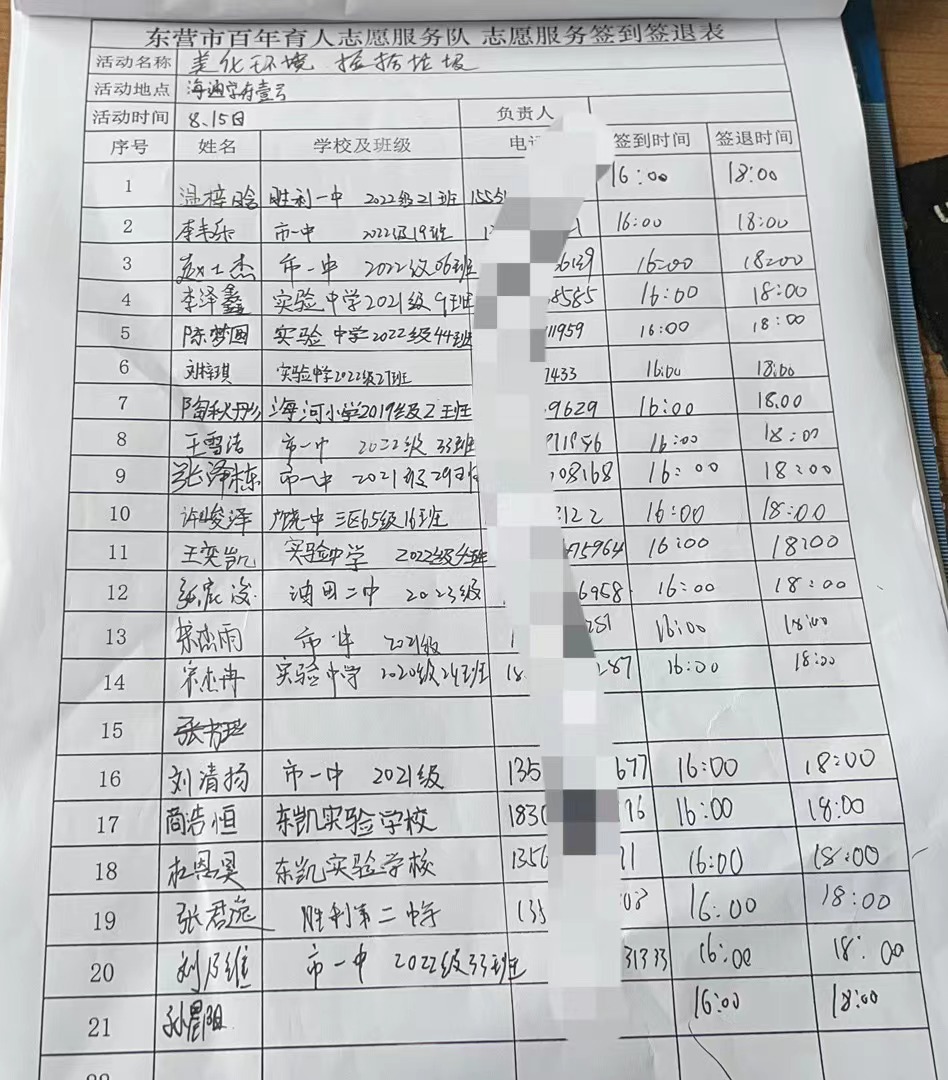 东营市百年育人志愿服务队 志愿服务签到签退表
活动名称 美化环境 捡拾垃圾
活动地点 海通 府壹号
活动时间 8.15日 负责人
序号 姓名 学校及班级 电话 签到时间 签退时间
1 温梓晗 胜利一中 2022级21班 1555 16:00 18:00
2 李 乐 市一中 2022级19班 1 1 16:00 18:00
3 赵士杰 市一中 2022级06班 6139 16:00 18:00
4 李泽鑫 实验中学2021级9班 8585 16:00 18:00
5 陈梦圆 实验中学2022级44班 11959 16:00 18:00
6 刘梓琪 实验中学2022级27班 7433 16:00 18:00
7 陶秋彤 海河小学2019级2班 9629 16:00 18.00
8 王雪洁 市一中 2022级33班 16:00 18:00
9 张泽栋 市一中 2021级29班 08168 16:00 18:00
10 许峻泽 广饶一中三区65级16班 3122 16:00 18:00
11 王奕凯 实验中学 2022级4班 75964 16:00 18:00
12 张宸浚 油田二中 2023级 6958 16:00 18:00
13 宋杰雨 市一中 2021级 1 251 16:00 18:00
14 宋杰冉 实验中学 2020级24班 18 287 16:00 18:00
15
16 刘清扬 市一中 2021级 135 677 16:00 18:00
17 商浩恒 东凯实验学校 1830 96 16:00 18:00
18 杜恩昊 东凯实验学校 1356 21 16:00 18:00
19 张君逸 胜利第二中学 133 08 16:00 18:00
20 刘乃维 市一中 2022级33班 31333 16:00 18:00
21 孙 阳 16:00 18:00